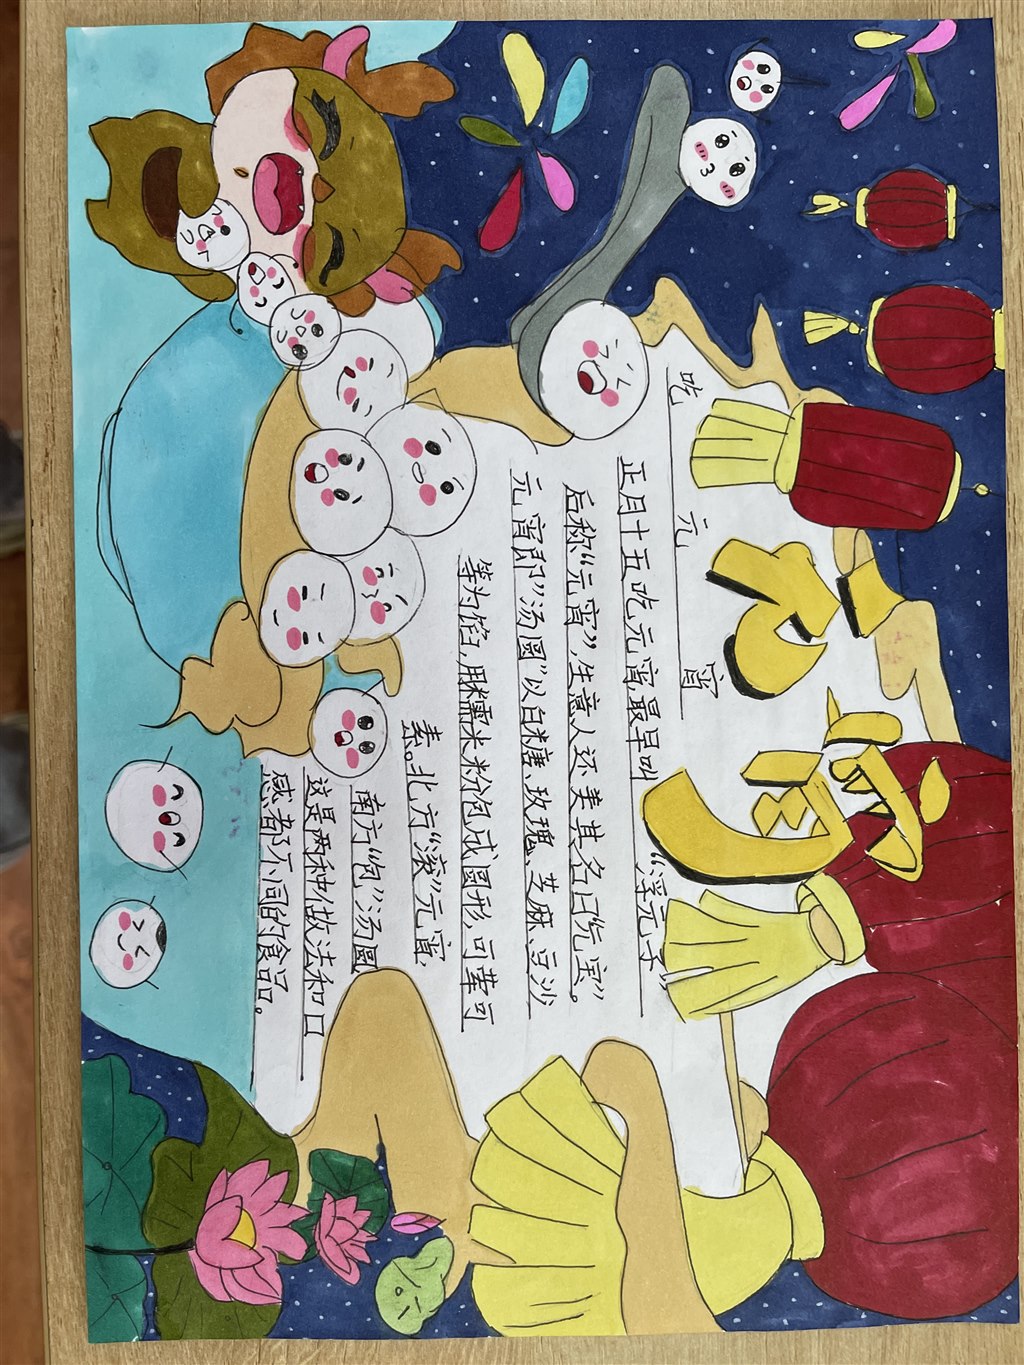 元宵
吃元宵
正月十五吃元宵,最早叫“浮元子”
后称“元宵”,生意人还美其名曰“元宝”。
元宵即”汤圆”以白糖、玫瑰、芝麻、豆沙
等为馅,用糯米粉包成圆形,可荤可
素。北方“滚”元宵,
南方“包”汤圆
这是两种做法和口
感都不同的食品。